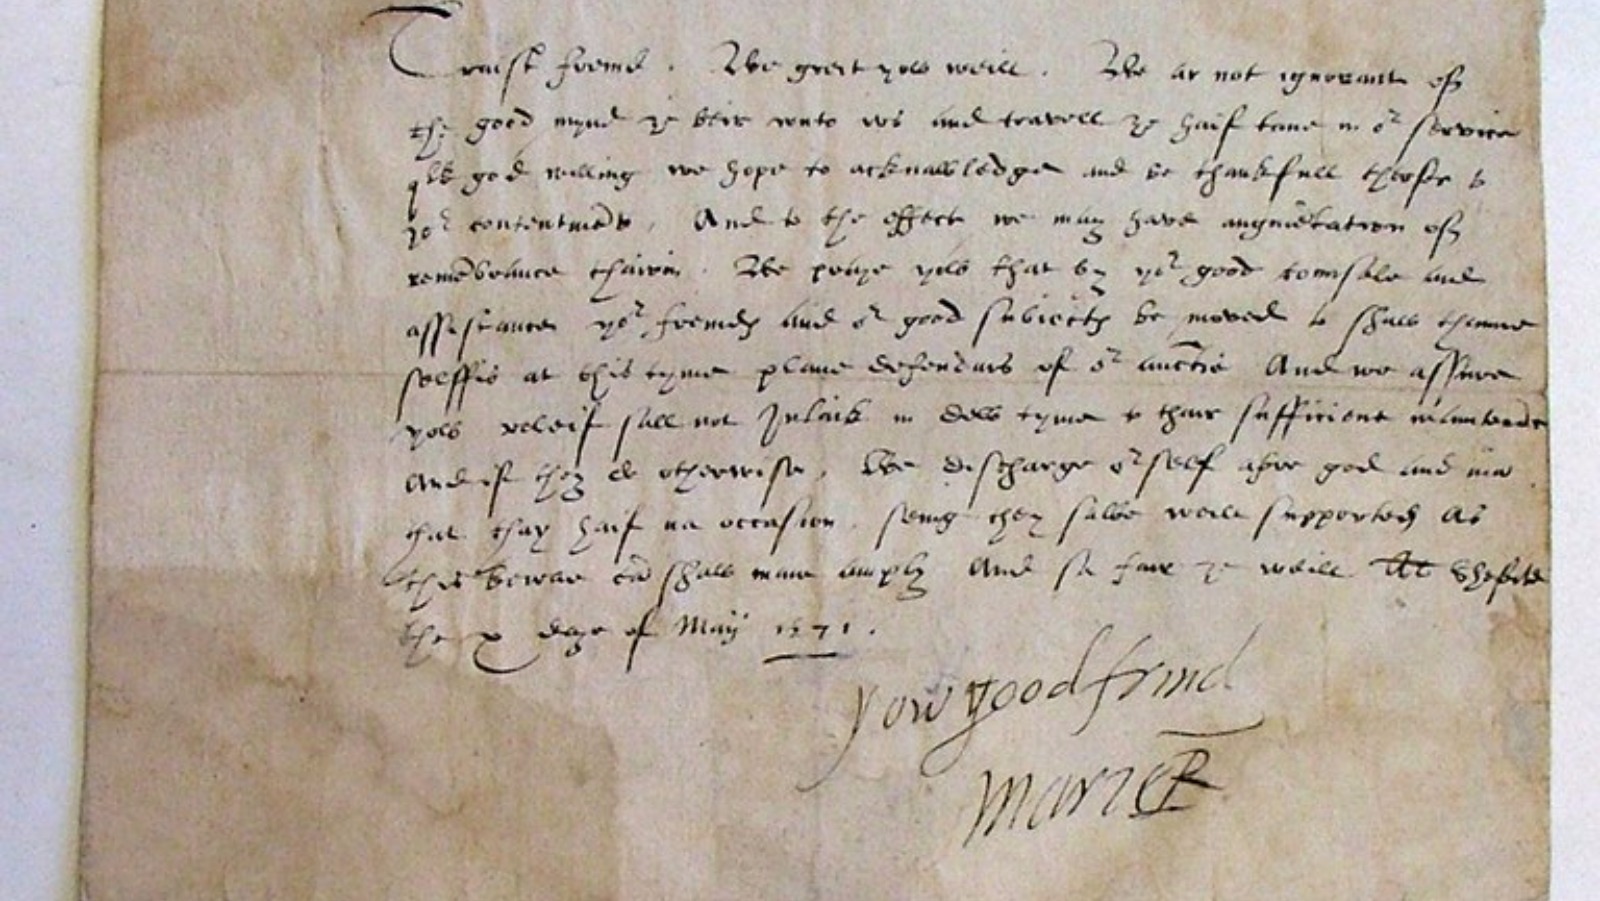 Traist freind. We greit yow weill. We ar not ignorant of
the good mynd ye beir unto us and travell ye haif tane in or service
qlk god willing we hope to acknawledge and be thankfull thairfor to
yor contentment. And to the effect we may have augmētation of
remēbrance thairin. We praye yow that by yor good counsale and
assistance yor freindis and or good subiectis be moved to shaw thame
selffis at this tyme plane defendars of or auctie And we assure
yow releif sall not Inlaik in dew tyme to thair sufficient
And if they do otherwise. We discharge orself afore god and
that thay haif na occasion. seing they salbe weill supported As
this berar can shaw mair amply And sa fair ye weill At Shefeild
the x daye of Maij 1571.
yowr good frind
Marie R